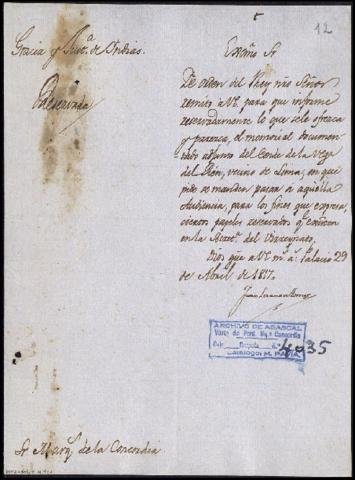 12
Gracia y Just.ª de Indias.
Reservada
Exmo Sr
De orden del Rey nro Señor
remito a VE. para que informe
reservadamente lo que se le ofrezca
y parezca, el memorial documen
tado adjunto del Conde de la Vega
del Ren, vecino de Lima, en que
pide se manden pasar á aquella
Audiencia, para los fines que expresa,
ciertos papeles reservados q.e existen
en la Secret.ª del Virreynato.
Dios gue a VE m.s a.s Palacio 29
de Abril de 1817.
ARCHIVO DE ABASCAL
Virrey del Perú, Mqs Concordia
4035
Catálogo: M. PAVIA
Sr Marq.s de la Concordia